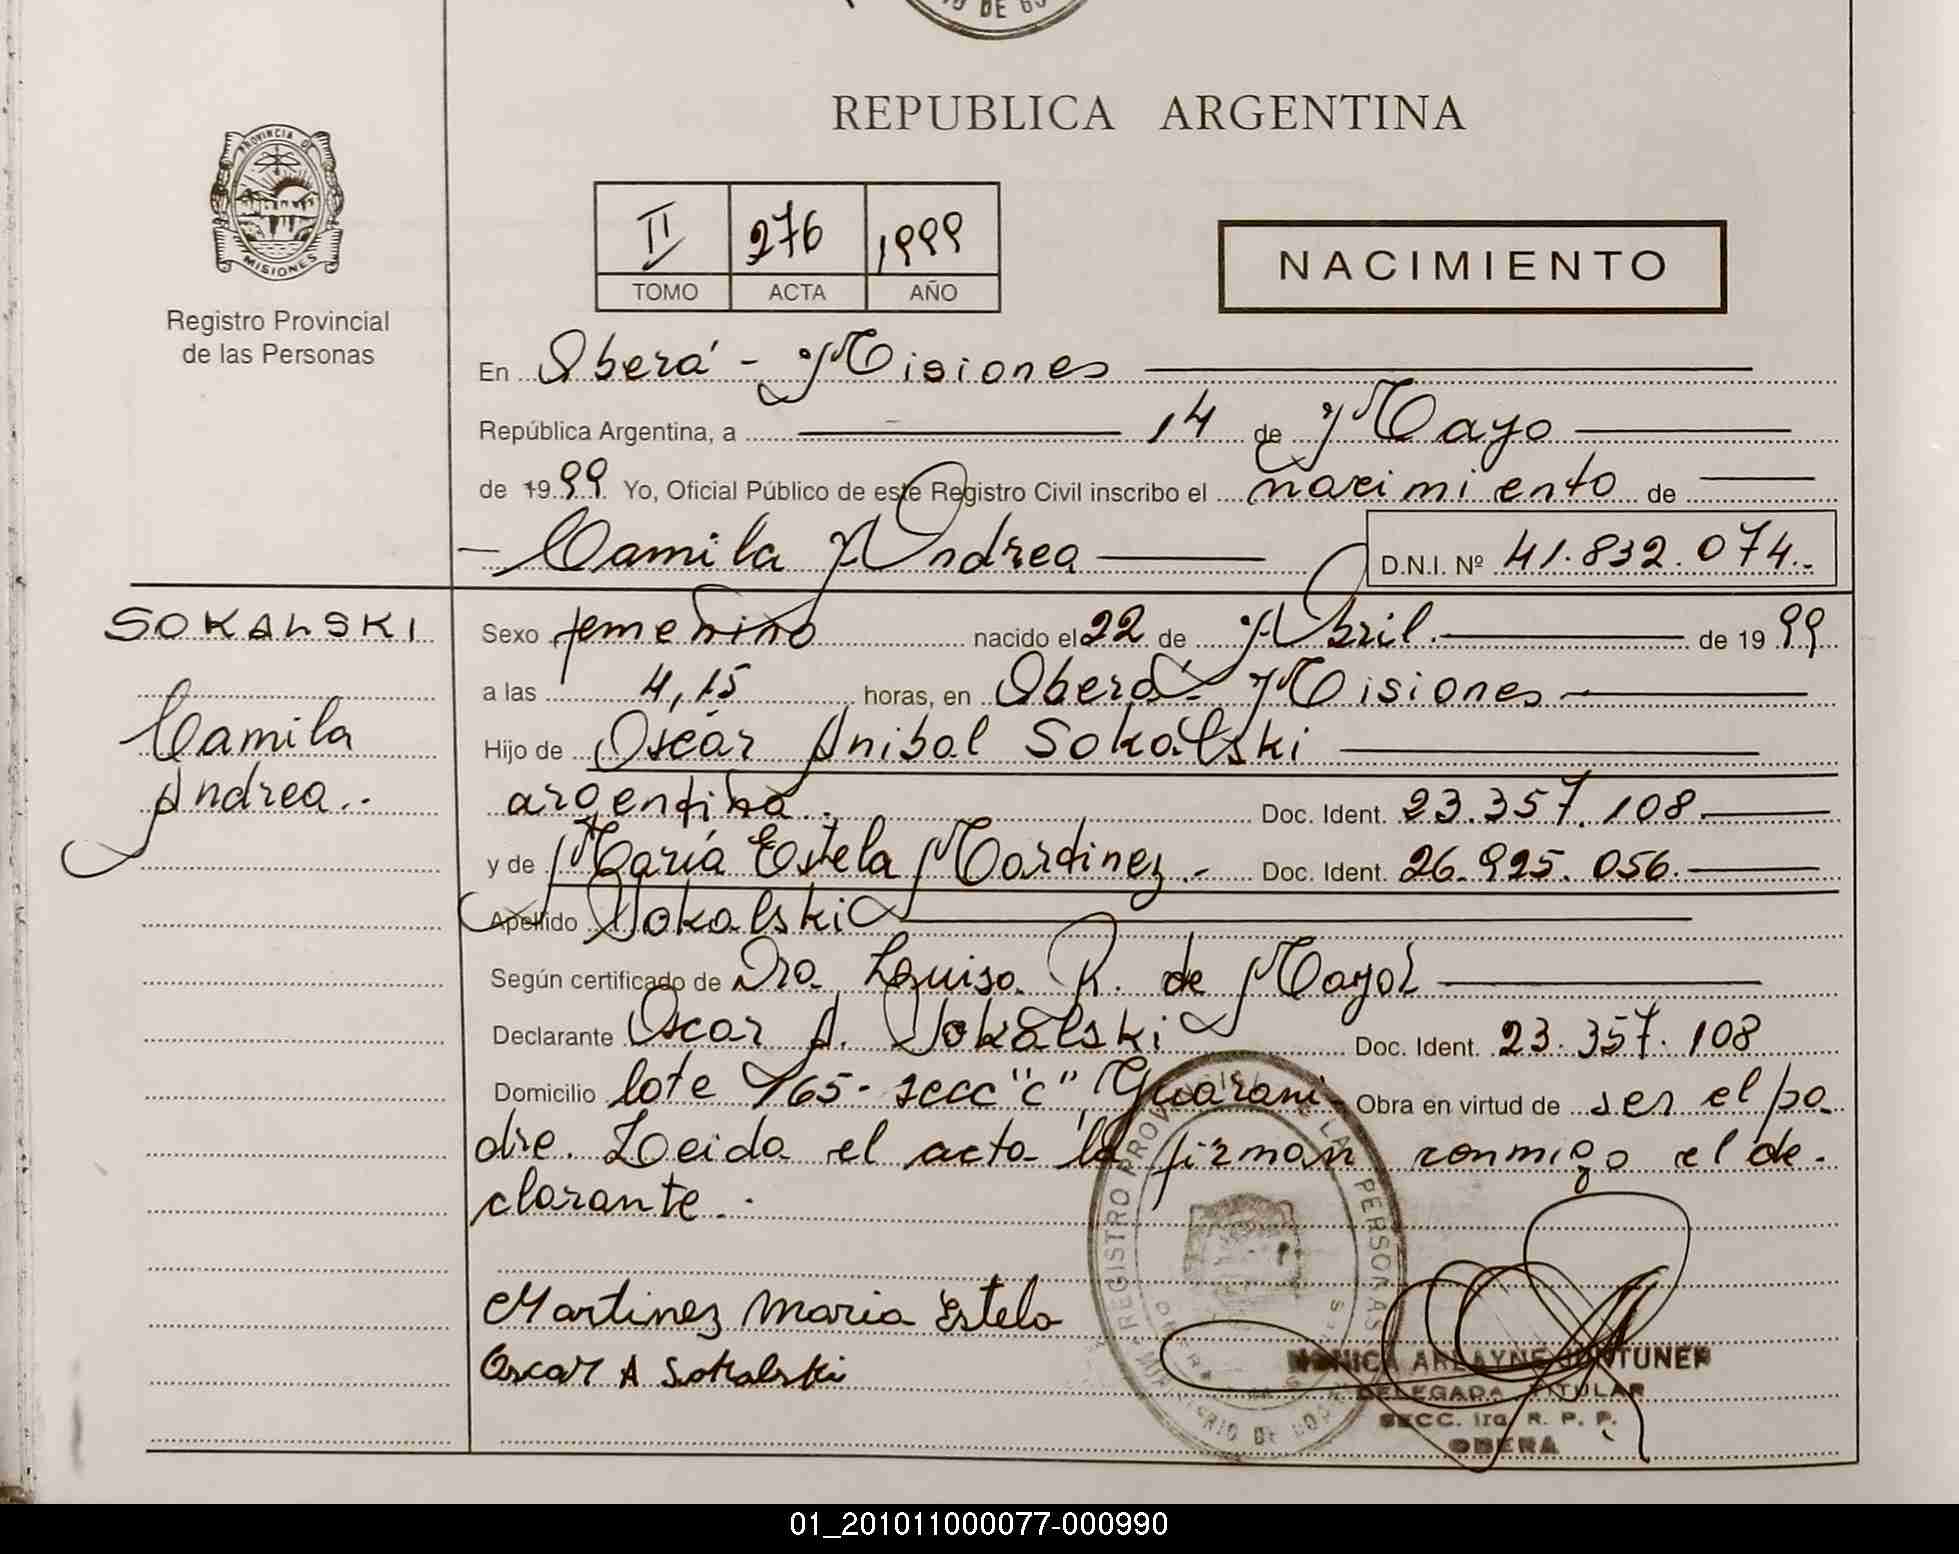 REPUBLICA ARGENTINA
PROVINCIA DE
MISIONES
Registro Provincial
de las Personas
II 276 1999
TOMO ACTA AÑO
NACIMIENTO
En Oberá - Misiones
República Argentina, a 14 de Mayo
de 1999 Yo, Oficial Público de este Registro Civil inscribo el nacimiento de
Camila Andrea D.N.I. Nº 41.832.074.-
SOKALSKI
Camila
Andrea..
Sexo femenino nacido el 22 de Abril. de 1999
a las 4,15 horas, en Oberá - Misiones
Hijo de Oscar Anibal Sokalski
argentina.. Doc. Ident. 23.357.108
y de María Estela Martinez.- Doc. Ident. 26.925.056.
Apellido Sokalski
Según certificado de Dra Louisa R. de Mayol
Declarante Oscar A. Sokalski Doc. Ident. 23.357.108
Domicilio lote 165- secc "c" Guarani- Obra en virtud de ser el pa
dre. Leida el acta la firman conmigo el de-
clarante.-
Martinez Maria Estela
Oscar A Sokalski
REGISTRO PROVINCIAL DE LAS PERSONAS
MINISTERIO DE
MONICA ARLAYNE
DELEGADA TITULAR
SECC. 1ra. R. P. P.
OBERA
01_201011000077-000990